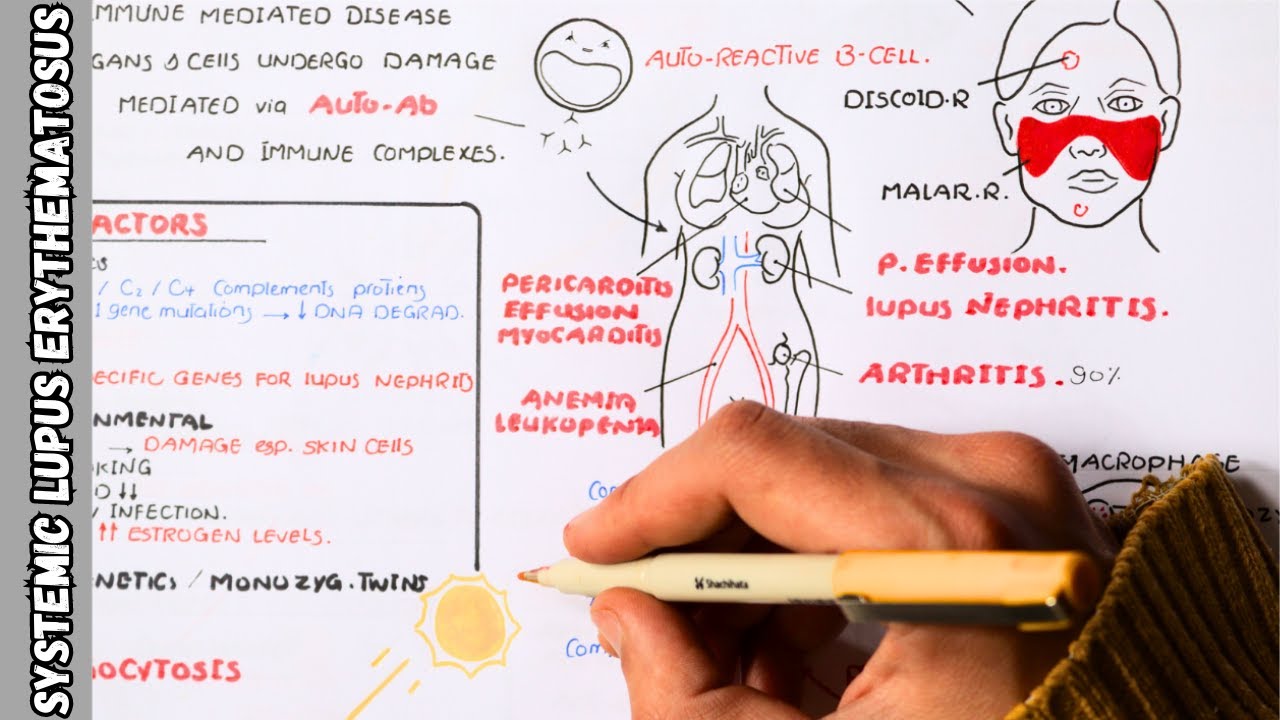 SYSTEMIC LUPUS ERYTHEMATOSUS
MMUNE MEDIATED DISEASE
GANS & CELLS UNDERGO DAMAGE
MEDIATED via AUTO-Ab
AND IMMUNE COMPLEXES.
AUTO-REACTIVE B-CELL.
DISCOID.R
MALAR.R.
ACTORS
/ C2 / C4 Complements protiens
1 gene mutations → ↓ DNA DEGRAD.
ECIFIC GENES FOR lupus NEPHRID
NMENTAL
→ DAMAGE esp. SKIN CELLS
KING
D ↓↓
INFECTION.
↑↑ ESTROGEN LEVELS.
NETICS / MONUZYG. TWINS
OCYTOSIS
PERICARDITIS
EFFUSION
MYOCARDITIS
ANEMIA
LEUKOPENIA
P. EFFUSION.
lupus NEPHRITIS.
ARTHRITIS. 90%
MACROPHAGE
Com
Com
Shachihata